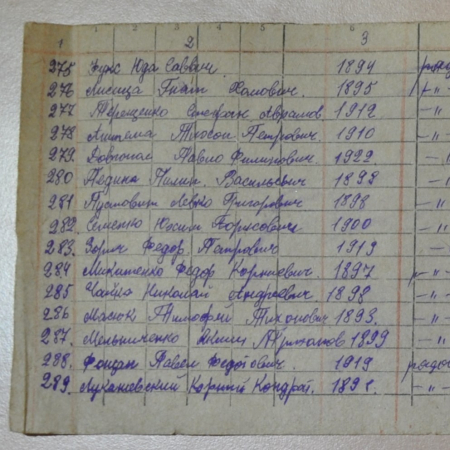 1 2 3
275 Зукс Юда Саввич 1894 рядо
276 Лисица Гнат Хомович. 1895 -"-
277 Терещенко Степан Аврамов. 1912 -"-
278 Литема Тиосон Петрович. 1910 -"-
279. Довгопол Павло Филипович. 1922 -"-
280 Педина Пилип. Васильевич 1898 -"-
281 Пустовит Левко Григорович 1898 -"-
282. Семенко Юхим Борисович 1900 -"-
283. Зорич Федор. Петрович 1913 -
284 Микитенко Федор Корниевич. 1897 -"-
285 Чайка Николай Андреевич. 1898 -"-
286 Мазюк Тимофей Тихонович 1893. -"-
287. Мельниченко Яким 1899 -"-
288. Фощан Павел Федотович 1919 рядо
289. Лукашевский Корний Кондрат. 1891. -"-